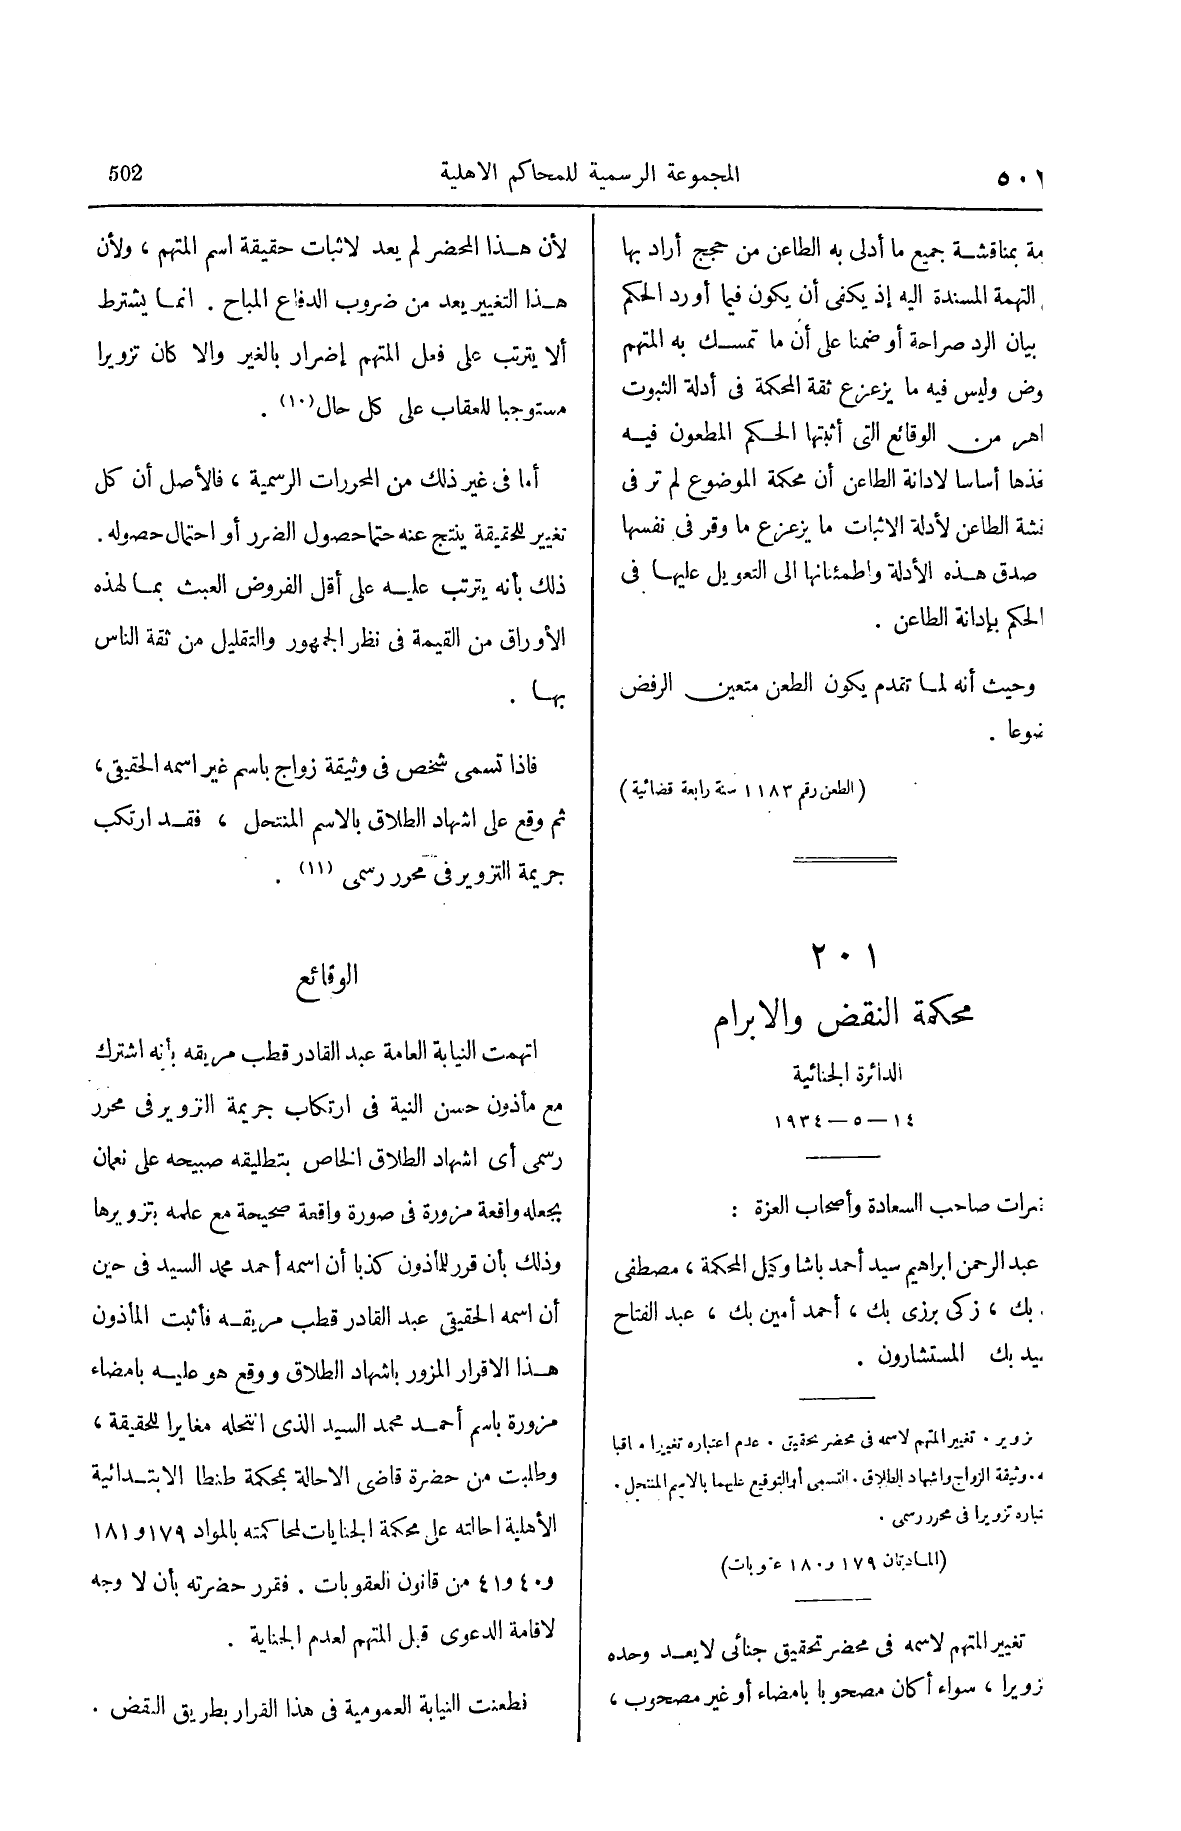 ٥٠١
المجموعة الرسمية للمحاكم الاهلية
502
مة بمناقشة جميع ما أدلى به الطاعن من حجج أراد بها
التهمة المسندة اليه إذ يكفى أن يكون فيما أورد الحكم
بيان الرد صراحة أو ضمنا على أن ما تمسك به المتهم
وض وليس فيه ما يزعزع ثقة المحكمة فى أدلة الثبوت
اهر من الوقائع التى أثبتها الحكم المطعون فيه
فذها أساسا لادانة الطاعن أن محكمة الموضوع لم تر فى
نشة الطاعن لأدلة الاثبات ما يزعزع ما وقر فى نفسها
صدق هذه الأدلة واطمئنانها الى التعويل عليها فى
الحكم بإدانة الطاعن .
وحيث أنه لما تقدم يكون الطعن متعين الرفض
ضوعا .
(الطعن رقم ١١٨٣ سنة رابعة قضائية)
٢٠١
محكمة النقض والابرام
الدائرة الجنائية
١٤ — ٥ — ١٩٣٤
نمرات صاحب السعادة وأصحاب العزة :
عبد الرحمن ابراهيم سيد أحمد باشا وكيل المحكمة ، مصطفى
بك ، زكى برزى بك ، أحمد أمين بك ، عبد الفتاح
ميد بك المستشارون .
زوير . تغيير المتهم لاسمه فى محضر تحقيق . عدم اعتباره تغييرا . اقبا
ه . وثيقة الزواج واشهاد الطلاق . التسمى أو التوقيع عليهما بالاسم المنتحل .
تباره تزويرا فى محرر رسمى .
(المادتان ١٧٩ و ١٨٠ عقوبات)
تغيير المتهم لاسمه فى محضر تحقيق جنائى لا يعد وحده
زويرا ، سواء أكان مصحوبا بامضاء أو غير مصحوب ،
لأن هذا المحضر لم يعد لاثبات حقيقة اسم المتهم ، ولأن
هذا التغيير يعد من ضروب الدفاع المباح . انما يشترط
ألا يترتب على فعل المتهم إضرار بالغير والا كان تزويرا
مستوجبا للعقاب على كل حال (١٠) .
أما فى غير ذلك من المحررات الرسمية ، فالأصل أن كل
تغيير للحقيقة ينتج عنه حتما حصول الضرر أو احتمال حصوله .
ذلك بأنه يترتب عليه على أقل الفروض العبث بما لهذه
الأوراق من القيمة فى نظر الجمهور والتقليل من ثقة الناس
بها .
فاذا تسمى شخص فى وثيقة زواج باسم غير اسمه الحقيقى ،
ثم وقع على اشهاد الطلاق بالاسم المنتحل ، فقد ارتكب
جريمة التزوير فى محرر رسمى (١١) .
الوقائع
اتهمت النيابة العامة عبد القادر قطب مريقه بأنه اشترك
مع مأذون حسن النية فى ارتكاب جريمة التزوير فى محرر
رسمى أى اشهاد الطلاق الخاص بتطليقه صبيحه على نعمان
بجعله واقعة مزورة فى صورة واقعة صحيحة مع علمه بتزويرها
وذلك بأن قرر للمأذون كذبا أن اسمه أحمد محمد السيد فى حين
أن اسمه الحقيقى عبد القادر قطب مريقه فأثبت المأذون
هذا الاقرار المزور باشهاد الطلاق ووقع هو عليه بامضاء
مزورة باسم أحمد محمد السيد الذى انتحله مغايرا للحقيقة ،
وطلبت من حضرة قاضى الاحالة بمحكمة طنطا الابتدائية
الأهلية احالته على محكمة الجنايات لمحاكمته بالمواد ١٧٩ و ١٨١
و ٤٠ و ٤١ من قانون العقوبات . فقرر حضرته بأن لا وجه
لاقامة الدعوى قبل المتهم لعدم الجناية .
فطعنت النيابة العمومية فى هذا القرار بطريق النقض .